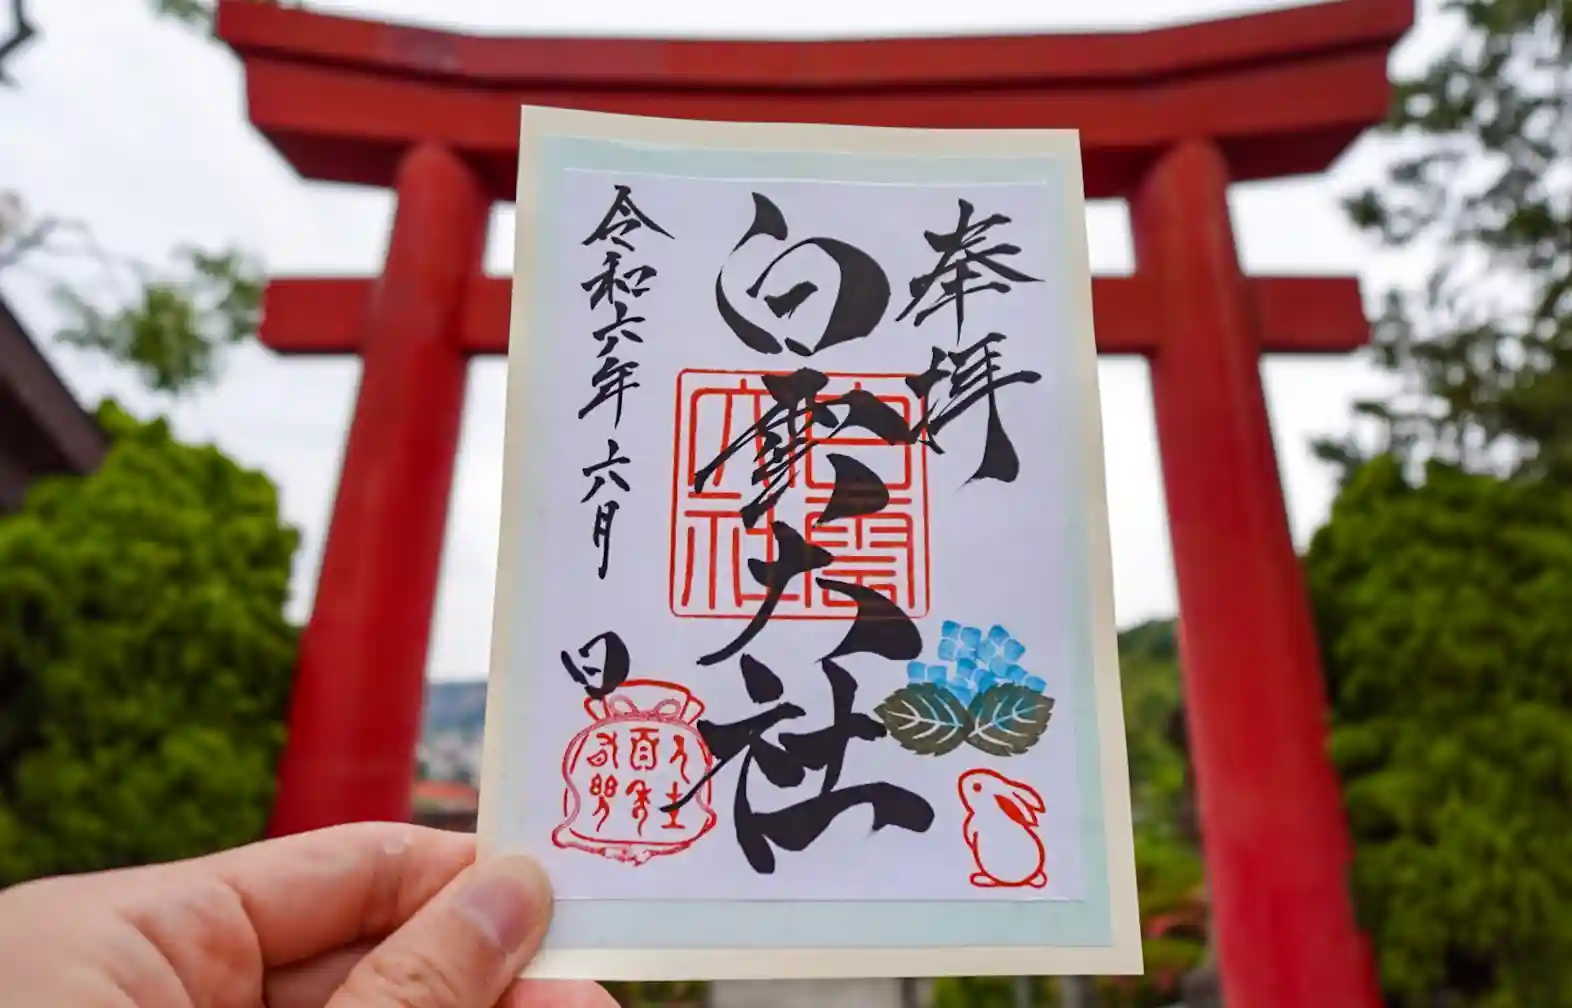 奉拝
白雲大社
白雲大社
令和六年六月
日